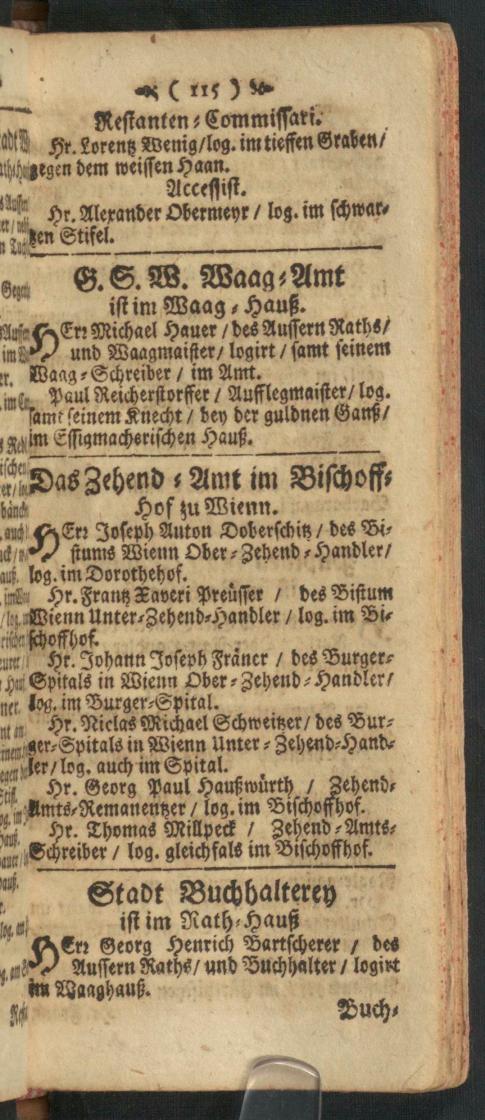 ( 115 )
Restanten-Commissari.
Hr. Lorentz Wenig/log. im tieffen Graben/
gegen dem weissen Haan.
Accessist.
Hr. Alexander Obermeyr / log. im schwar-
tzen Stifel.
G. S. W. Waag-Amt
ist im Waag-Hauß.
HErr Michael Hauer / des Aussern Raths/
und Waagmaister/ logirt / samt seinem
Waag-Schreiber / im Amt.
Paul Reicherstorffer / Aufflegmaister/ log.
samt seinem Knecht / bey der guldnen Ganß/
im Essigmacherischen Hauß.
Das Zehend-Amt im Bischoff-
Hof zu Wienn.
HErr Joseph Anton Doberschitz / des Bi-
stums Wienn Ober-Zehend-Handler/
log. im Dorothehof.
Hr. Frantz Xaveri Preüsser / des Bistum
Wienn Unter-Zehend-Handler / log. im Bi-
schoffhof.
Hr. Johann Joseph Fräner / des Burger-
Spitals in Wienn Ober-Zehend-Handler/
log. im Burger-Spital.
Hr. Niclas Michael Schweitzer/ des Bur-
ger-Spitals in Wienn Unter-Zehend-Hand-
ler/ log. auch im Spital.
Hr. Georg Paul Haußwürth / Zehend-
Amts-Remanentzer / log. im Bischoffhof.
Hr. Thomas Millpeck / Zehend-Amts-
Schreiber / log. gleichfals im Bischoffhof.
Stadt Buchhalterey
ist im Rath-Hauß
HErr Georg Henrich Bartscherer / des
Aussern Raths/ und Buchhalter / logirt
im Waaghauß.
Buch-